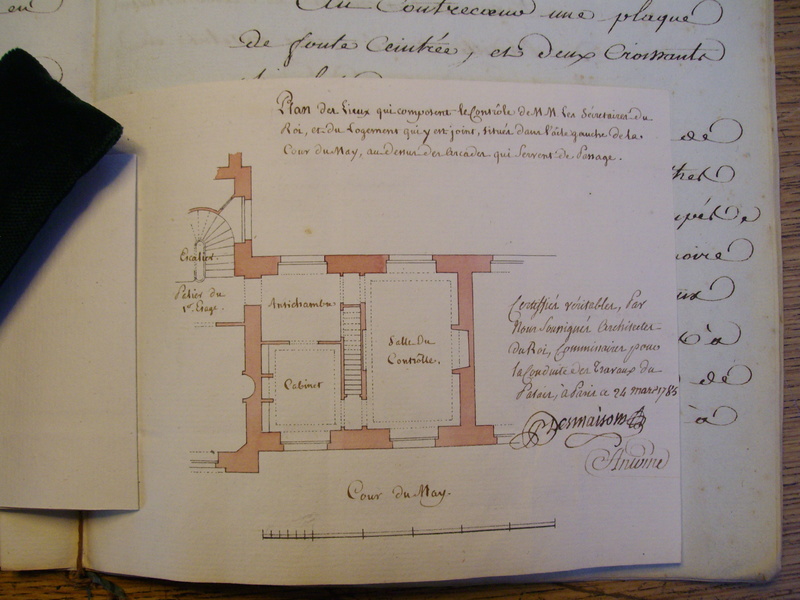 Au Contrecœur une plaque
de fonte Ceintrée, et deux Croissants
en
Plan des Lieux qui composent le Contrôle de MM les Sécretaires du
Roi, et du Logement qui y est joint, situés dans l'aile gauche de la
Cour du May, au dessus des Arcades qui servent de Passage.
de
moire
de
à
Escalier.
Palier du
1er. Etage.
Antichambre
Cabinet
Salle du
Contrôle.
Certiffié véritables, Par
Nous soussigné Architecte
du Roi, Commissaire pour
la Conduite des travaux du
Palais, à Paris ce 24 mars 1785
Desmaisons
Antoine
Cour du May.